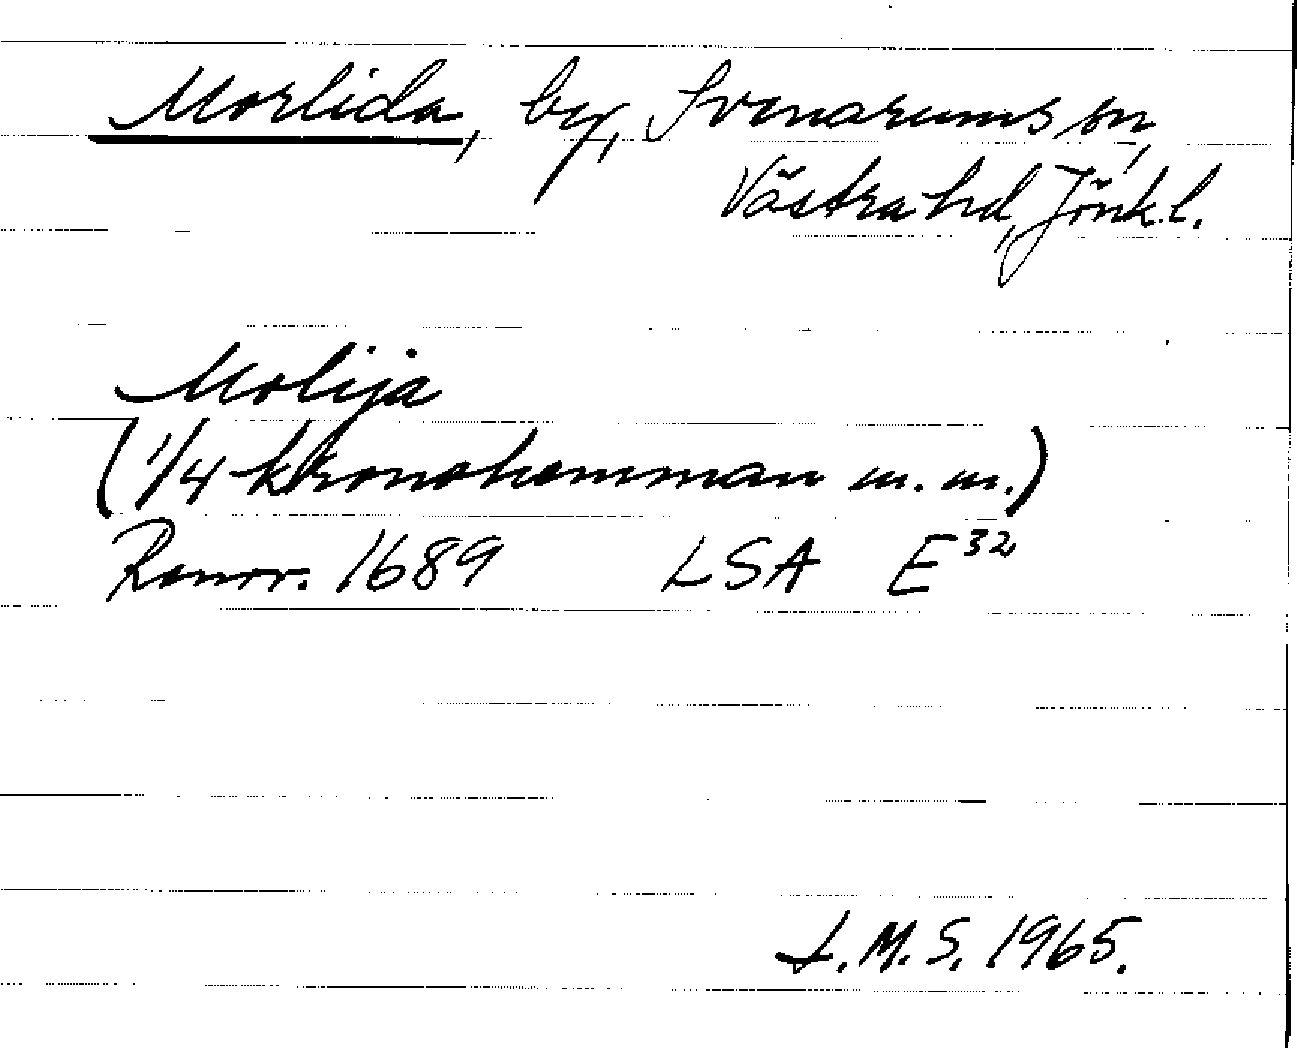 Morlida, by, Svenarums sn,
Västra hd, Jönk.l.
Molija
(1/4 kronohemman m.m.)
Ranrr. 1689 LSA E32
L.M.S. 1965.